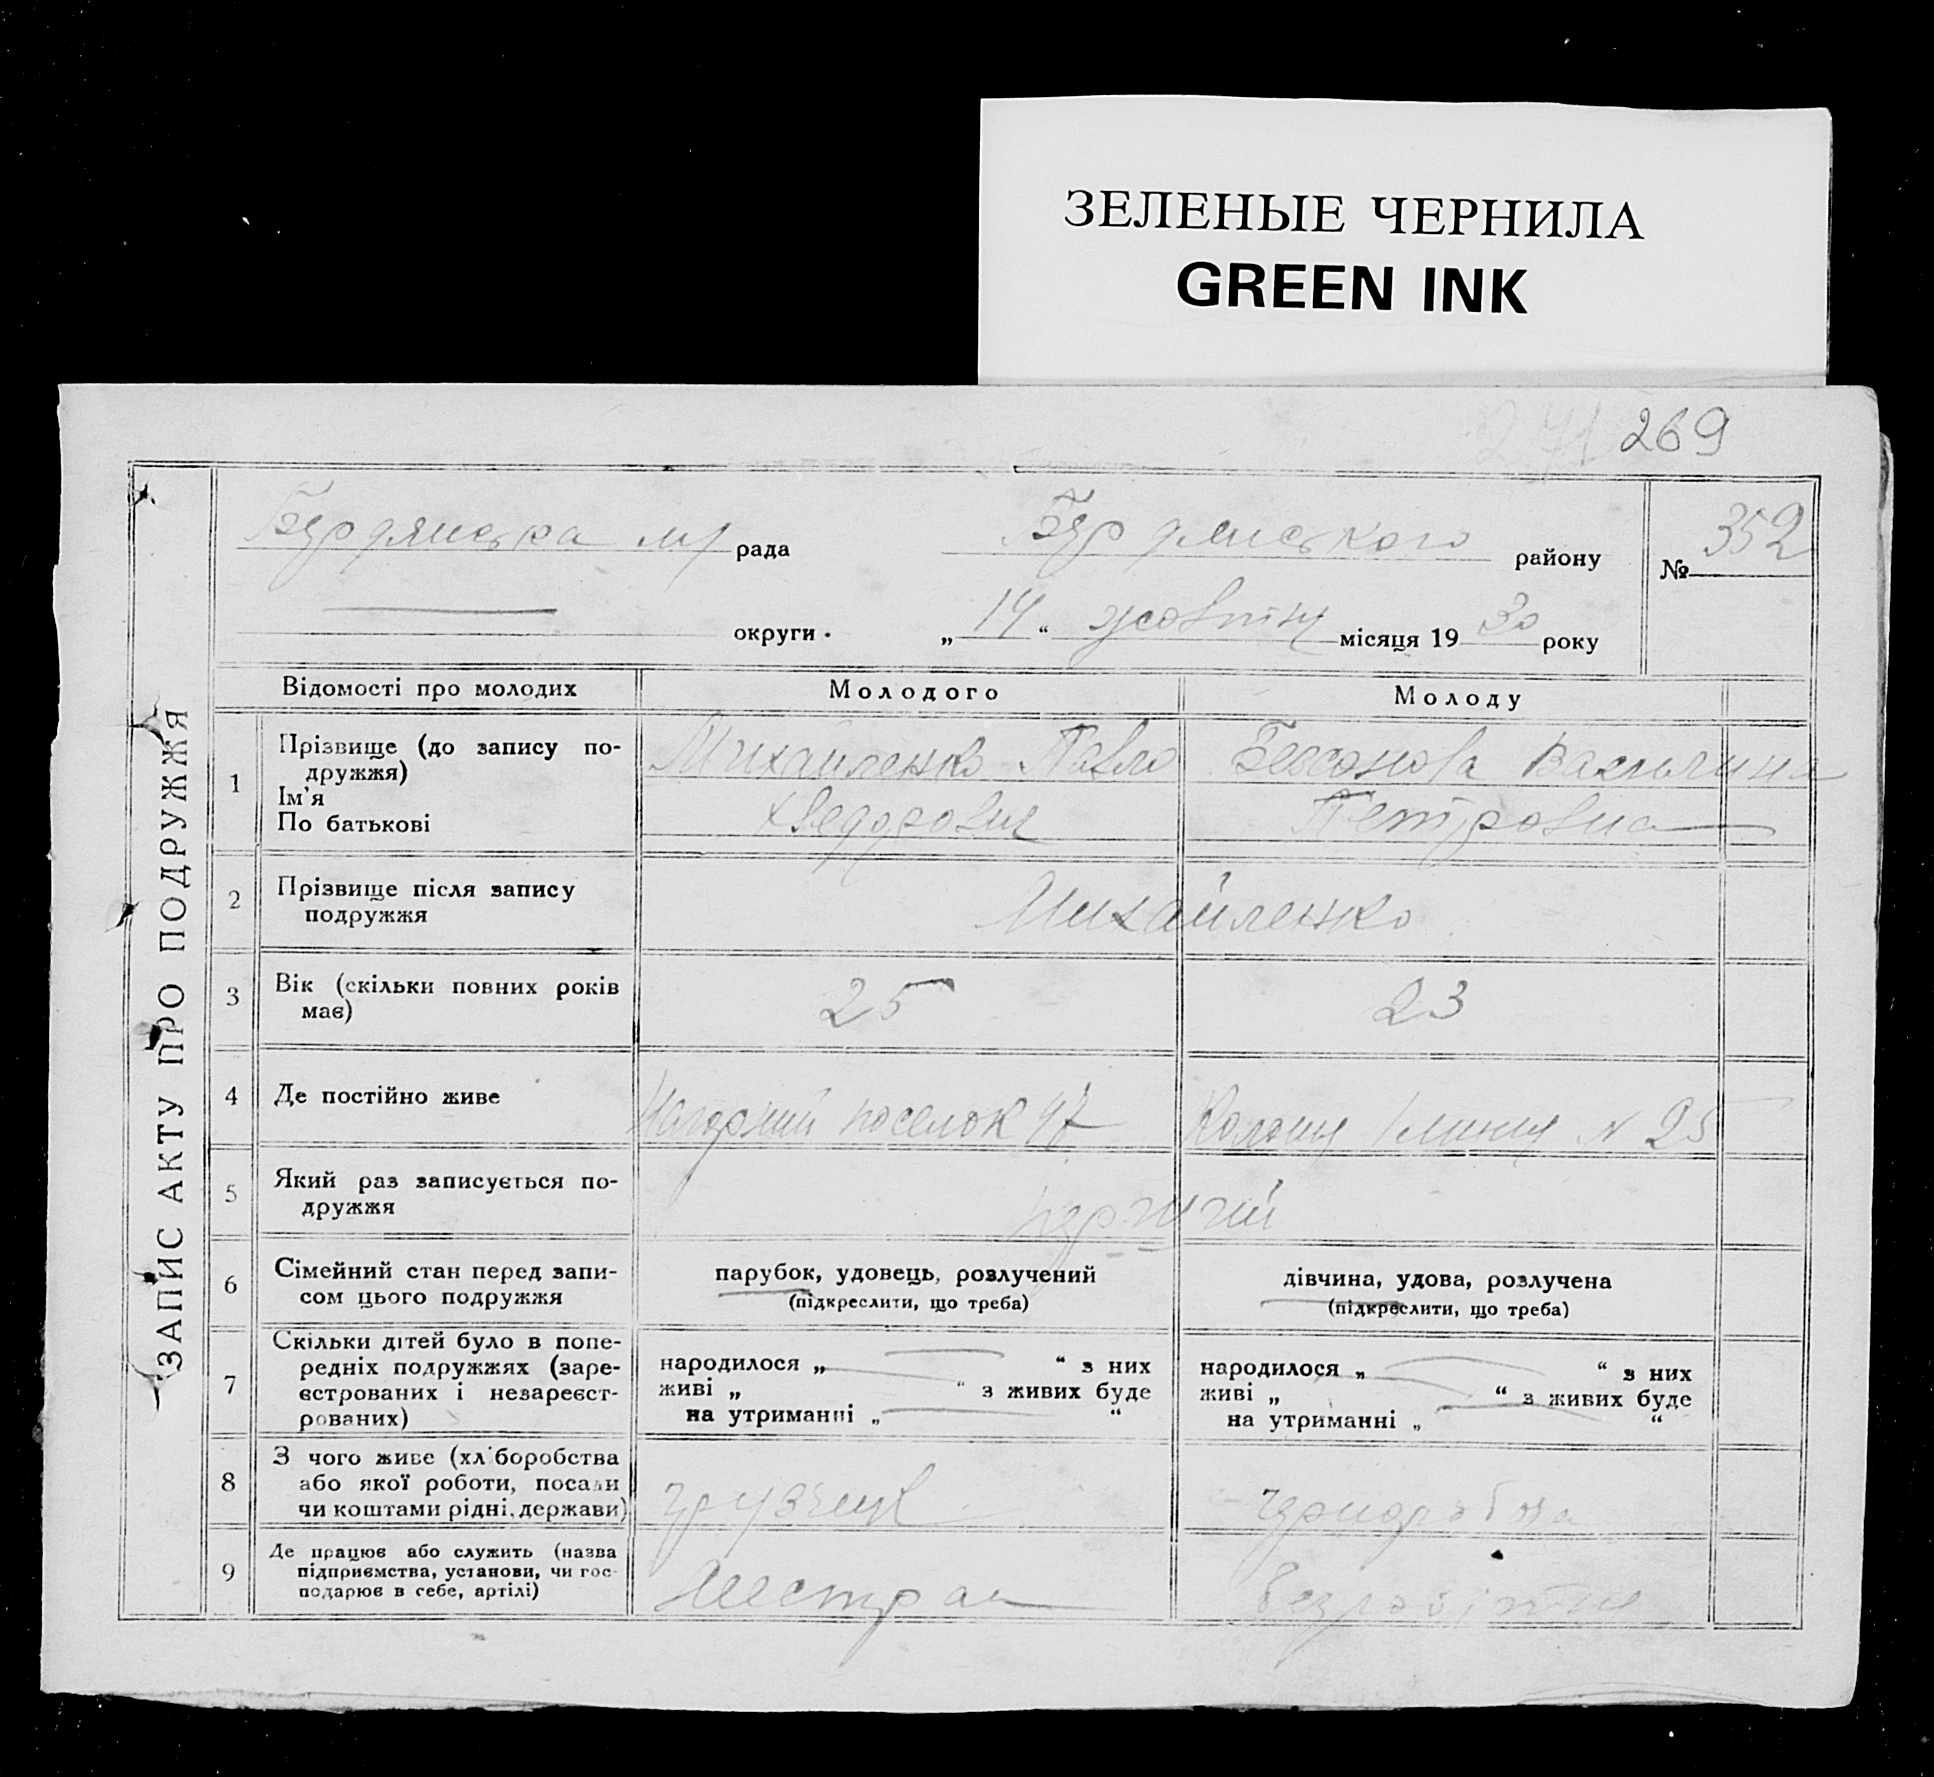 ЗЕЛЕНЫЕ ЧЕРНИЛА
GREEN INK
271 269
ЗАПИС АКТУ ПРО ПОДРУЖЖЯ
Бердянська м/ рада Бердянського району № 352
округи. „14“ жовтня місяця 1930 року
Відомості про молодих Молодого Молоду
1 Прізвище (до запису по-
дружжя)
Ім'я
По батькові
Михайленко Павло
Хведорович
Бессонова Васылина
Петровна
2 Прізвище після запису
подружжя
Михайленко
3 Вік (скільки повних років
має)
25 23
4 Де постійно живе
Нагорний поселок 47
Колонія 1 линия N 25
5 Який раз записується по-
дружжя
перший
6 Сімейний стан перед запи-
сом цього подружжя
парубок, удовець, розлучений
(підкреслити, що треба)
дівчина, удова, розлучена
(підкреслити, що треба)
7 Скільки дітей було в попе-
редніх подружжях (заре-
єстрованих і незареєст-
рованих)
народилося „ “ з них
живі „ “ з живих буде
на утриманні „ “
народилося „ “ з них
живі „ “ з живих буде
на утриманні „ “
8 З чого живе (хліборобства
або якої роботи, посади
чи коштами рідні, держави)
грузчик
9 Де працює або служить (назва
підприємства, установи, чи гос-
подарює в себе, артілі)
безробітна